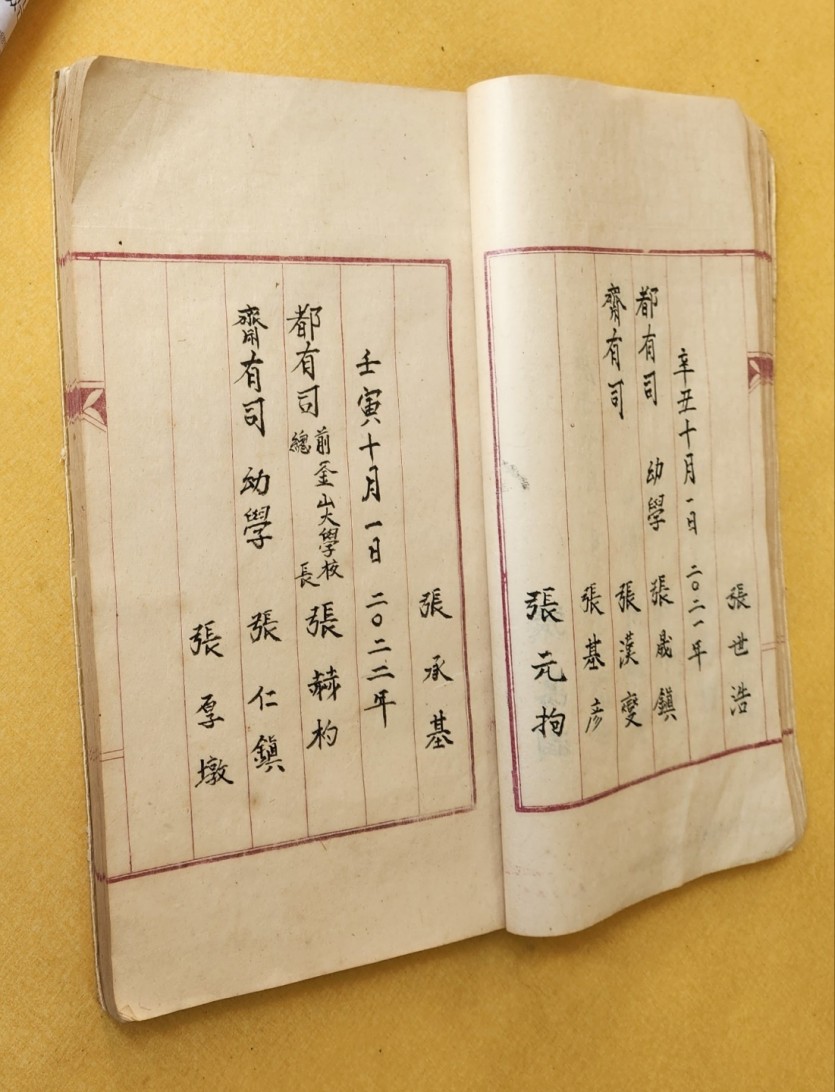 張世浩
辛丑十月一日 二〇二一年
都有司 幼學 張晟鎭
齋有司 張漢燮
張基彦
張元拘
張承基
壬寅十月一日 二〇二二年
都有司 前釜山大學校總長 張赫杓
齋有司 幼學 張仁鎭
張厚墩